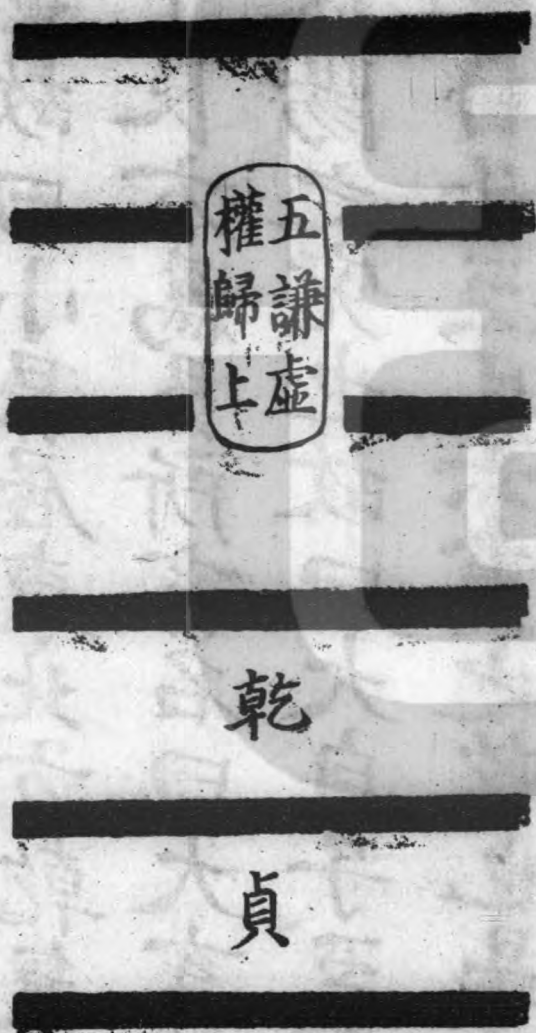 五謙虛
權歸上
乾
貞